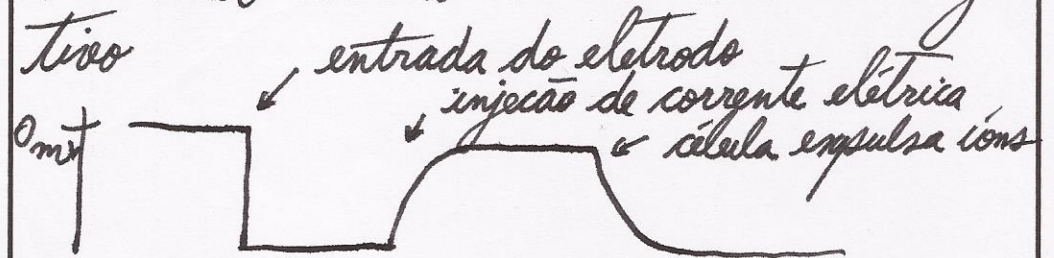 tivo
entrada do eletrodo
injecão de corrente elétrica
0mv
célula expulsa íons